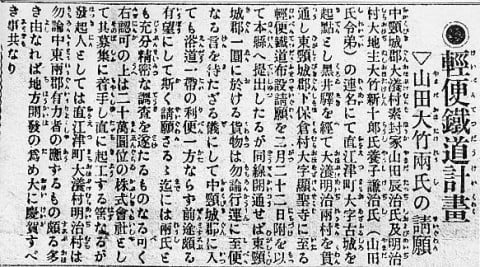 ●輕便鐵道計畫
▽山田大竹兩氏の請願
中頸城郡大瀁村素封家山田辰治氏及明治
村大地主大竹新十郎氏養子謙治氏(山田
氏令弟)の連名にて直江津町大字古城を
起點とし黒井驛を經て大瀁明治兩村を貫
通し東頸城郡下保倉村大字顯聖寺に至る
輕便鐵道布設請願を二月二十二日附を以
て本縣へ提出したるが同線開通せば東頸
城郡一圓に於ける貨物は勿論行運に至便
なる言を待たざる儀にして中頸城郡に入
ても沿道一帶の利便一方ならず前途頗る
有望にして斯く請願さるゝ迄には兩氏と
も充分精密な調査を遂たるものなる可く
右認可の上は二十萬圓位の株式會社とし
て其募集に着手し直に起工する筈なるが
發起人としては直江津町大瀁村明治村は
勿論中東兩郡有力者の應ずるもの頗る多
き由なれば地方開發の爲め大に慶賀すべ
き事共なり